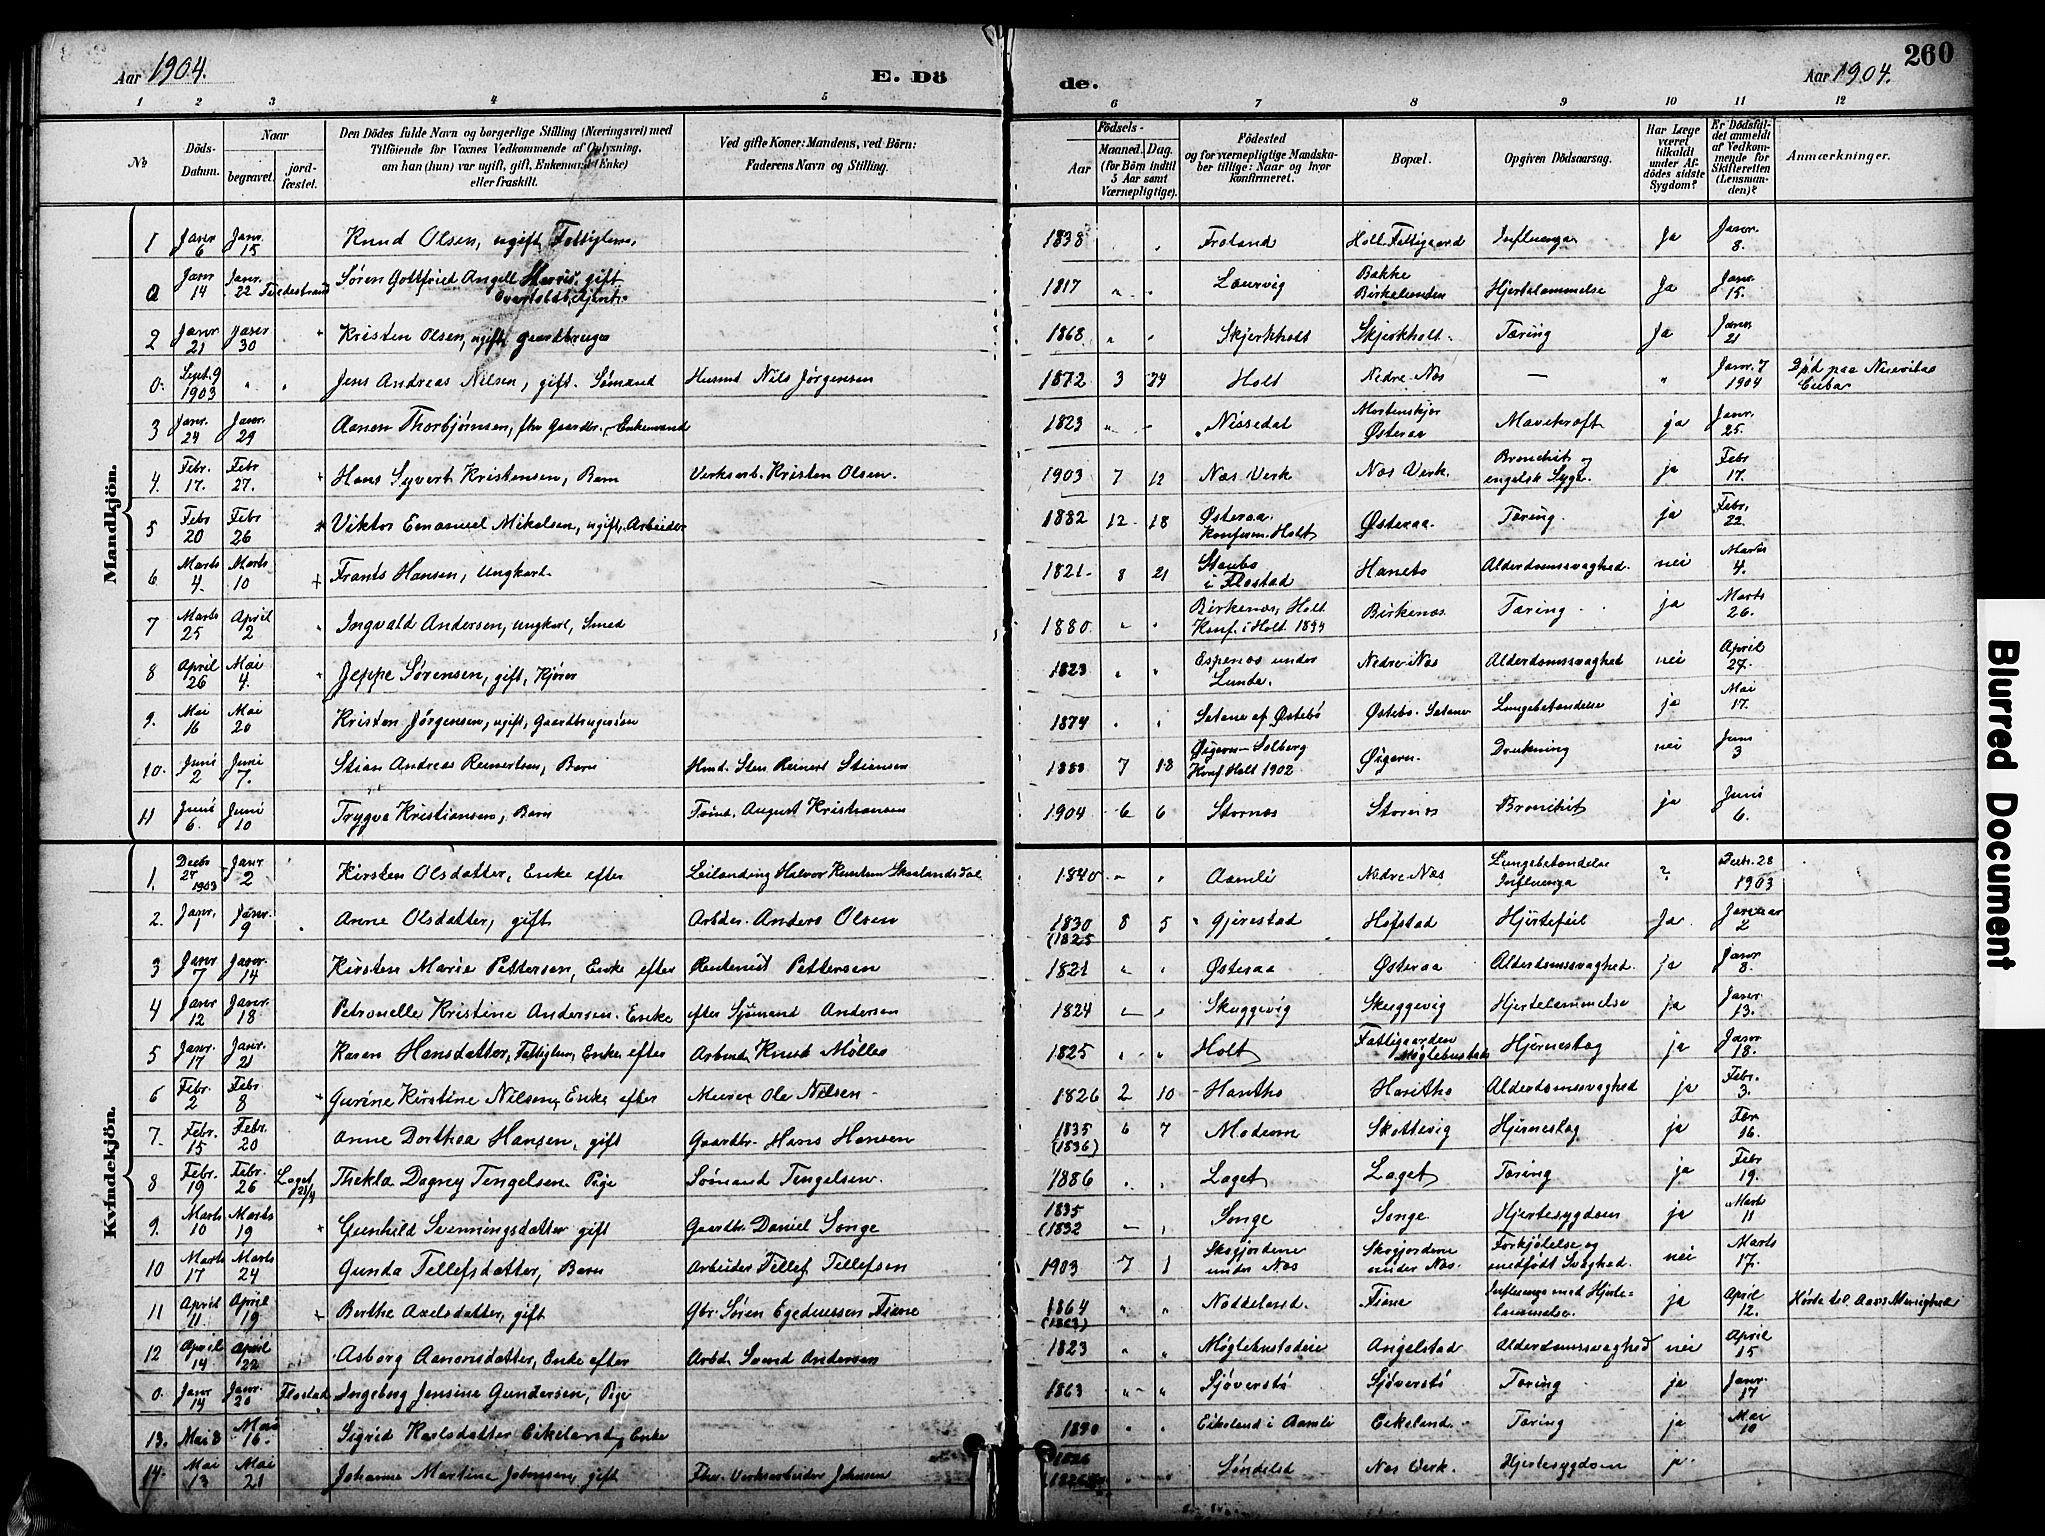 Aar 1904.
E. Döde.
Aar 1904.
260
1 2 3 4 5 6 7 8 9 10 11 12
No
Döds-Datum.
Naar
begravet.
jordfæstet.
Den Dödes fulde Navn og borgerlige Stilling (Næringsvei) med
Tilföiende for Voxnes Vedkommende af Oplysning,
om han (hun) var ugift, gift, Enkemand (Enke)
eller fraskilt.
Ved gifte Koner: Mandens, ved Börn:
Faderens Navn og Stilling.
Födsels-
Aar
Maaned. Dag.
(for Börn indtil
5 Aar samt
Værnepligtige).
Födested
og for værnepligtige Mandskaber tillige: Naar og hvor
konfirmeret.
Bopæl.
Opgiven Dödsaarsag.
Har Læge
været
tilkaldt
under Afdödes sidste
Sygdom?
Er Dödsfaldet anmeldt
af Vedkommende for
Skifteretten
(Lensmanden)?
Anmærkninger.
Mandkjön.
1 Janr 6 Janr 15 Knud Olsen, ugift Fattiglem, 1838 Froland Holt Fattiggaard Influenza Ja Janr. 8.
Janr 14 Janr. 22 Søren Gottfried Angell gift 1817 Laurvig Bakke Birkelunden Hjertelammelse Ja Janr. 15.
2 Janr 21 Janr 30 Kristen Olsen, ugift gaardbruger 1868 Skjerkholt Skjerkholt. Tæring Ja Janr 21
0. Sept. 9 1903 Jens Andreas Nilsen, gift. Sømand Husmd Nils Jørgensen 1872 3 24 Holt Nedre-Næs — Janr. 7 1904 Død paa Cuba
3 Janr. 24 Janr. 29 Aanon Thorbjørnsen, fhv Gaardbr., Enkemand 1823 Nissedal Østeraa Mavekræft ja Janr. 25.
4. Febr. 17. Febr 27. Hans Syvert Kristensen, Barn Verksarb. Kristen Olsen. 1903 7 12 Næs Verk Næs Verk. Bronchit og engelsk Syge. ja Febr 17.
5 Febr 20 Febr 26 Viktor Emanuel Mikalsen, ugift, Arbeider 1882 12 18 Østeraa. Konferm. Holt Østeraa. Tæring. ja Febr. 22.
6 Marts 4. Marts 10 Frants Hansen, Ungkarl. 1821 8 21 Staubø i Flostad Alderdomssvaghed. nei Marts 4.
7 Marts 25 April 2 Ingvald Andersen, Ungkarl, Smed 1880. Birkenæs, Holt Konf. i Holt 1894 Birkenæs Tæring ja Marts 26.
8 April 26 Mai 4. Jeppe Sørensen, gift, Kjører 1823 Espenæs under Lunde. Nedre-Næs Alderdomssvaghed nei April 27.
9. Mai 16 Mai 20 Kristen Jørgensen, ugift, Gaardbrugersøn 1874 Satane af Østebø Østebø. Satane Lungebetændelse ja Mai 17.
10. Juni 2 Juni 7. Stian Andreas Reinertsen, Barn Hmd. Sten Reinert Stiansen 1888 7 18 Øigern-Solberg Konf. Holt 1902 Øigern. Drukning nei Juni 3
11 Juni 6. Juni 10 Trygve Kristiansen, Barn Tømd. August Kristiansen 1904 6 6 Stornæs Stornæs Bronchit ja Juni 6.
Kvindekjön.
1. Decbr 27 1903 Janr 2 Kirsten Olsdatter, Enke efter Leilænding Halvor Knutsen 1840 Aamli Nedre-Næs Lungebetændelse Influenza ? Decbr. 28 1903
2. Janr. 1 Janr. 9 Anne Olsdatter, gift Arbdr. Anders Olsen 1830 (1825 8 5 Gjerestad Hofstad Hjertefeil Ja. Januar 2
3 Janr 7 Janr. 14 Kirsten Marie Pettersen, Enke efter Pettersen 1821 Østeraa Østeraa Alderdomssvaghed. ja Janr 8.
4 Janr 12 Janr. 18 Petronelle Kristine Andersen. Enke efter Sjømand Andersen 1824 Skuggevig Skuggevig Hjertelammelse ja Janr. 13.
5 Janr. 17 Janr. 21 Karen Hansdatter, Fattiglem, Enke efter Arbeider Knut 1825 Holt Fattiggaarden Hjerneslag ja Janr 18.
6 Febr. 2 Febr 8 Gurine Kirstine Nilsen, Enke efter Murer Ole Nilsen 1826 2 10 Alderdomssvaghed ja Febr. 3.
7. Febr. 15 Febr. 20 Anne Dorthea Hansen, gift Gaardbr. Hans Hansen 1835 (1836) 6 7 Modum Skottevig Hjerneslag ja 16.
8 Febr. 19 Febr. 26 Laget Thekla Dagny Tengelsen Pige Sømand Tengelsen. 1886 Laget Laget Tæring ja Febr 19.
9. Marts 10 Marts 19 Gunhild Svenningsdatter gift Gaardbr Daniel Songe 1835 (1832 Songe Songe. Hjertesygdom ja Marts 11
10 Marts 17 Marts 24 Gunda Tellefsdatter, Barn Arbeider Tellef Tellefsen 1903 7 1 Skogjordene under Næs Skogjordene under Næs. Forkjølelse og medfødt Svaghed. nei Marts 17.
11 April 11 April 19 Berthe Axelsdatter, gift Gbr. Søren Egedeussen Fiane 1864 (1863) Noddeland. Fiane Influenza med Hjertelammelse. ja April 12. Hørte til Aas Menighed
12 April 14 April 22 Asborg Aanonsdatter, Enke efter Arbd. Svend Andersen 1823 Møglebustadeie Angelstad Alderdomssvaghed nei April 15
0. Janr 14 Janr. 20 Flostad Ingeborg Jensine Gundersen, Pige 1863 Sjøverstø Sjøverstø Tæring ja Janr. 17
13. Mai 8 Mai 16. Sigrid Karlsdatter Eikeland, Enke Eikeland i Aamli Eikeland. Tæring ja Mai 10
14. Mai 13 Mai 21 Johanne Martine Johnsen, gift Fhv. Verksarbeider Johnsen 1826 Søndeled Næs Verk. Hjertesygdom ja
Blurred Document